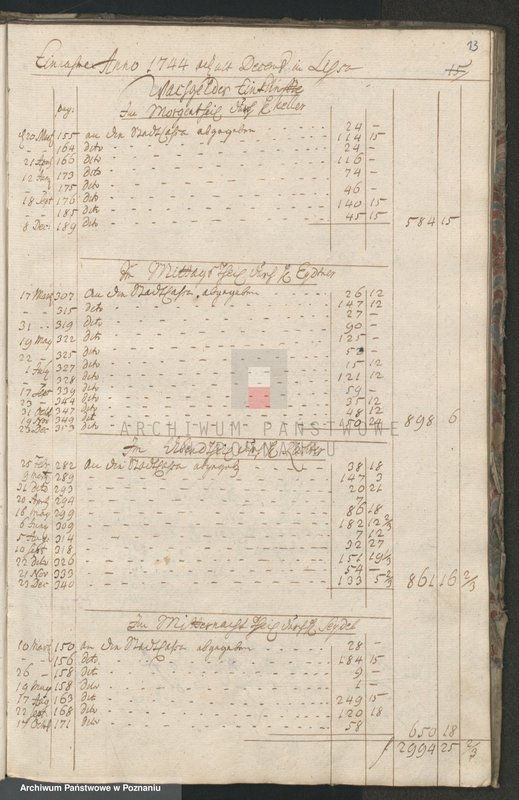 23
Einnahme Anno 1744 biß ult Decemb in Lissa
15
Wachgelder Einkünfte
pag.
Im Morgentheil durch H Keller
20 Mart 155 an den Stadtcassa abgegeben 24 –
– – 164 dito 114 15
– – 164 dito 24 –
21 Juny 166 dito 116 –
12 Aug 173 dito 74 –
– – 175 dito 46 –
18 Sept 176 dito 140 15
– – 185 dito
8 Dec: 189 dito 45 15
584 15
Im Mittags Theil durch H Eydner
17 Mart 307 An den Stadtcassa abgegeben 26 12
– – 315 dito 147 12
31 – 319 dito 27 –
19 May 322 dito 90 –
22 – 325 dito 125 –
1 Aug 327 dito 15 12
– – 328 dito 121 12
17 Sept 339 dito 59 –
23 – 344 dito 35 12
31 Octb 347 dito 48 12
19 Nov 349 dito
23 Dec 353 dito
898 6
Im
25 Febr 282 an den Stadtcassa abgegeb 38 18
289 147 3
293 20 21
20 April 294 7
16 May 299 86 18
6 Juny 309 182 12 2/3
5 Aug 314 7 12
10 Sept 318 32 27
22 Octb 326 151 19 1/3
21 Nov 333 54 –
23 Dec 340 133 5 2/3
861 16 2/3
Im Mitternacht Theil durch H Seydel
10 Mart 150 an den Stadtcassa abgegeben 28 –
– – 156 dito 184 15
26 – 158 dito 9 –
19 May 158 dito 1 –
17 Aug 163 dito 249 15
22 Sept 168 dito 120 18
17 Octb 171 dito 58
650 18
f 2994 25 2/3
ARCHIWUM PAŃSTWOWE
W POZNANIU
Archiwum Państwowe w Poznaniu